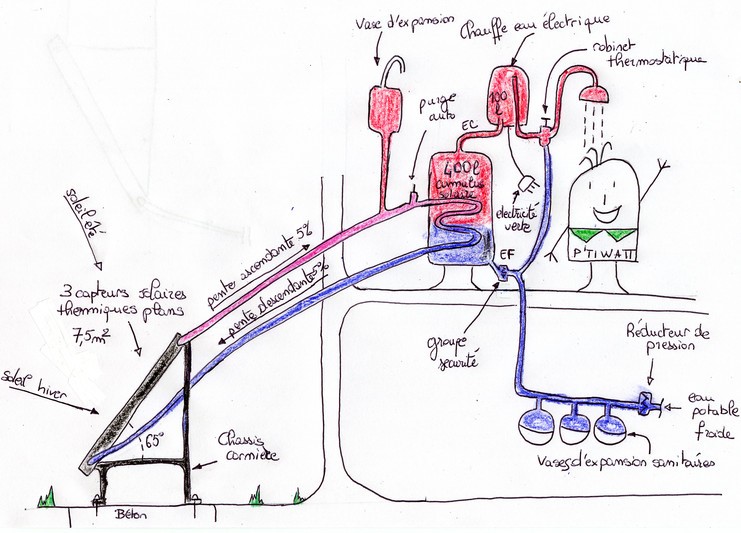 Vase d'expansion
Chauffe eau électrique
robinet
thermostatique
purge
auto
EC
100
l
400l
cumulus
solaire
électricité
verte
P'TIWATT
EF
groupe
sécurité
soleil été
pente ascendante 5%
pente descendante 5%
3 capteurs solaires
thermiques plans
7,5m²
soleil hiver
65°
Chassis
cornière
Béton
Réducteur de
pression
eau
potable
froide
Vases d'expansion sanitaires